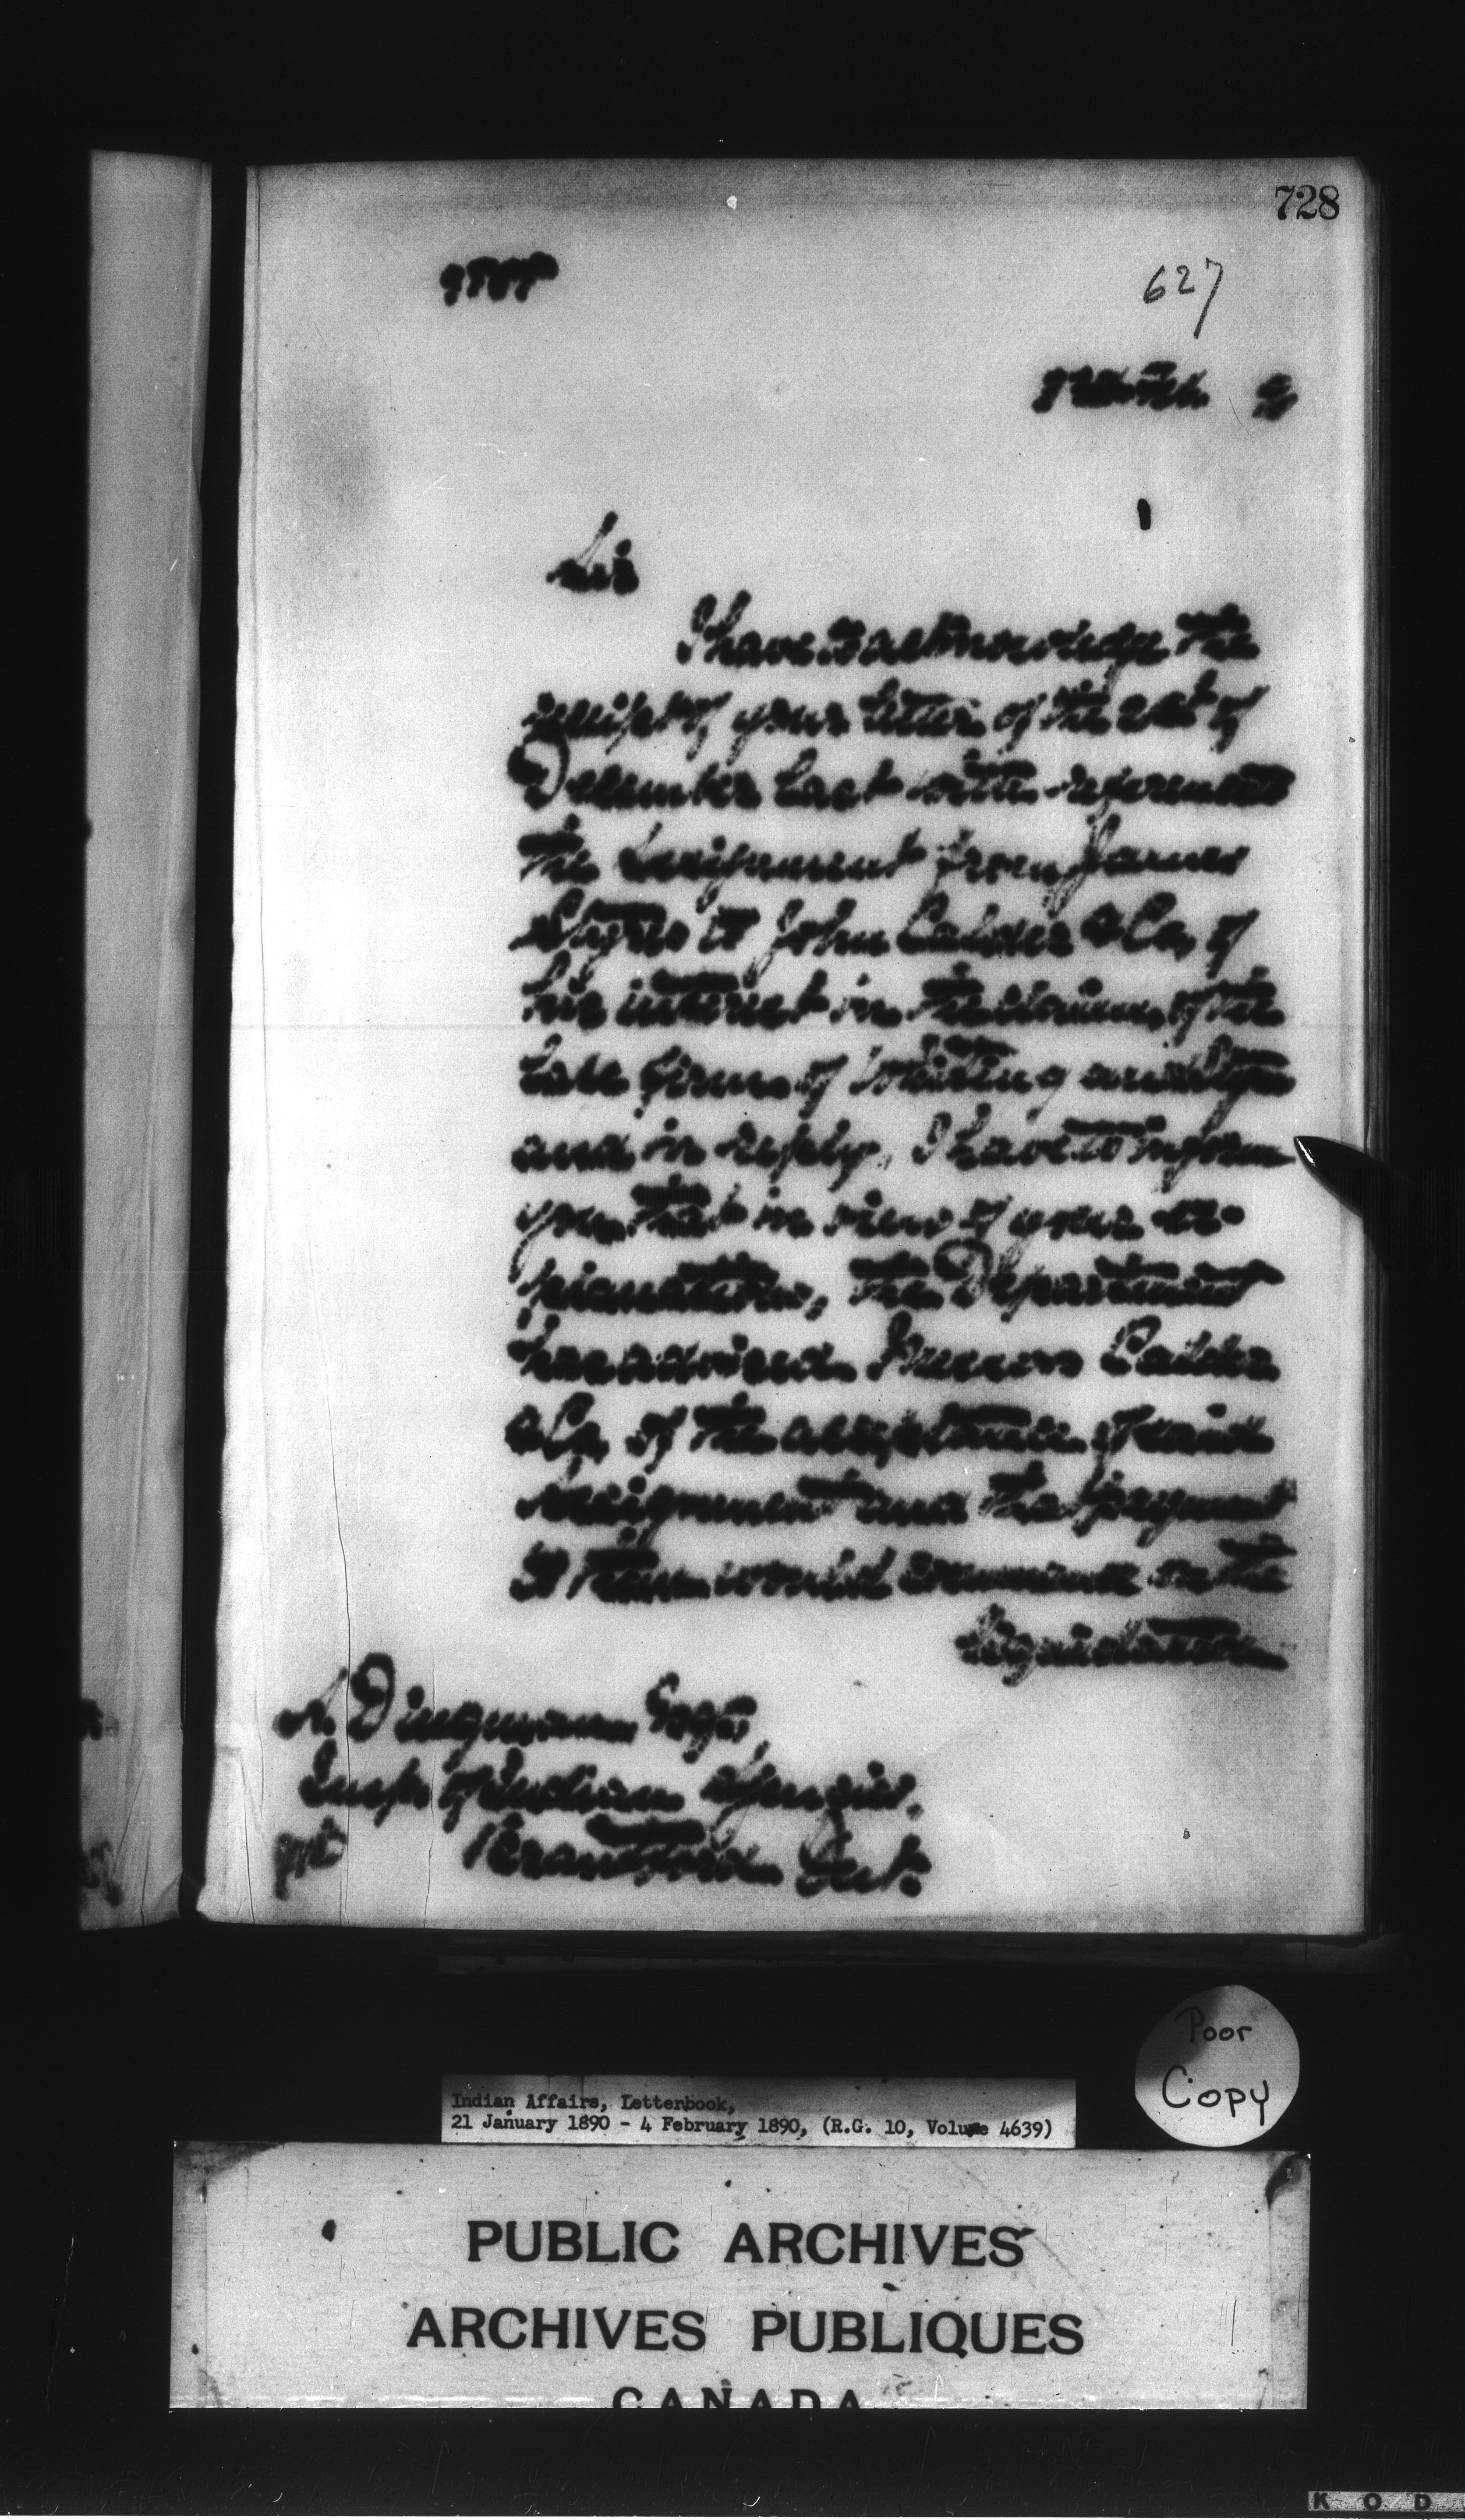 728
627
Sir
I have to acknowledge the
receipt of your letter of the 21st of
December last with reference to
the assignment from James
to John Calder & Co. of
his interest in the claims of the
late firm of Whiting and
and in reply, I have to inform
you that in view of your ex-
planations, the Department
has advised Messrs Calder
& Co. of the acceptance of said
assignment and that payment
to them would commence on the
liquidation
A. Dingman Esqr,
Insp. of Indian Agencies,
Brantford Ont.
Poor
Copy
Indian Affairs, Letterbook,
21 January 1890 - 4 February 1890, (R.G. 10, Volume 4639)
PUBLIC ARCHIVES
ARCHIVES PUBLIQUES
CANADA
KOD